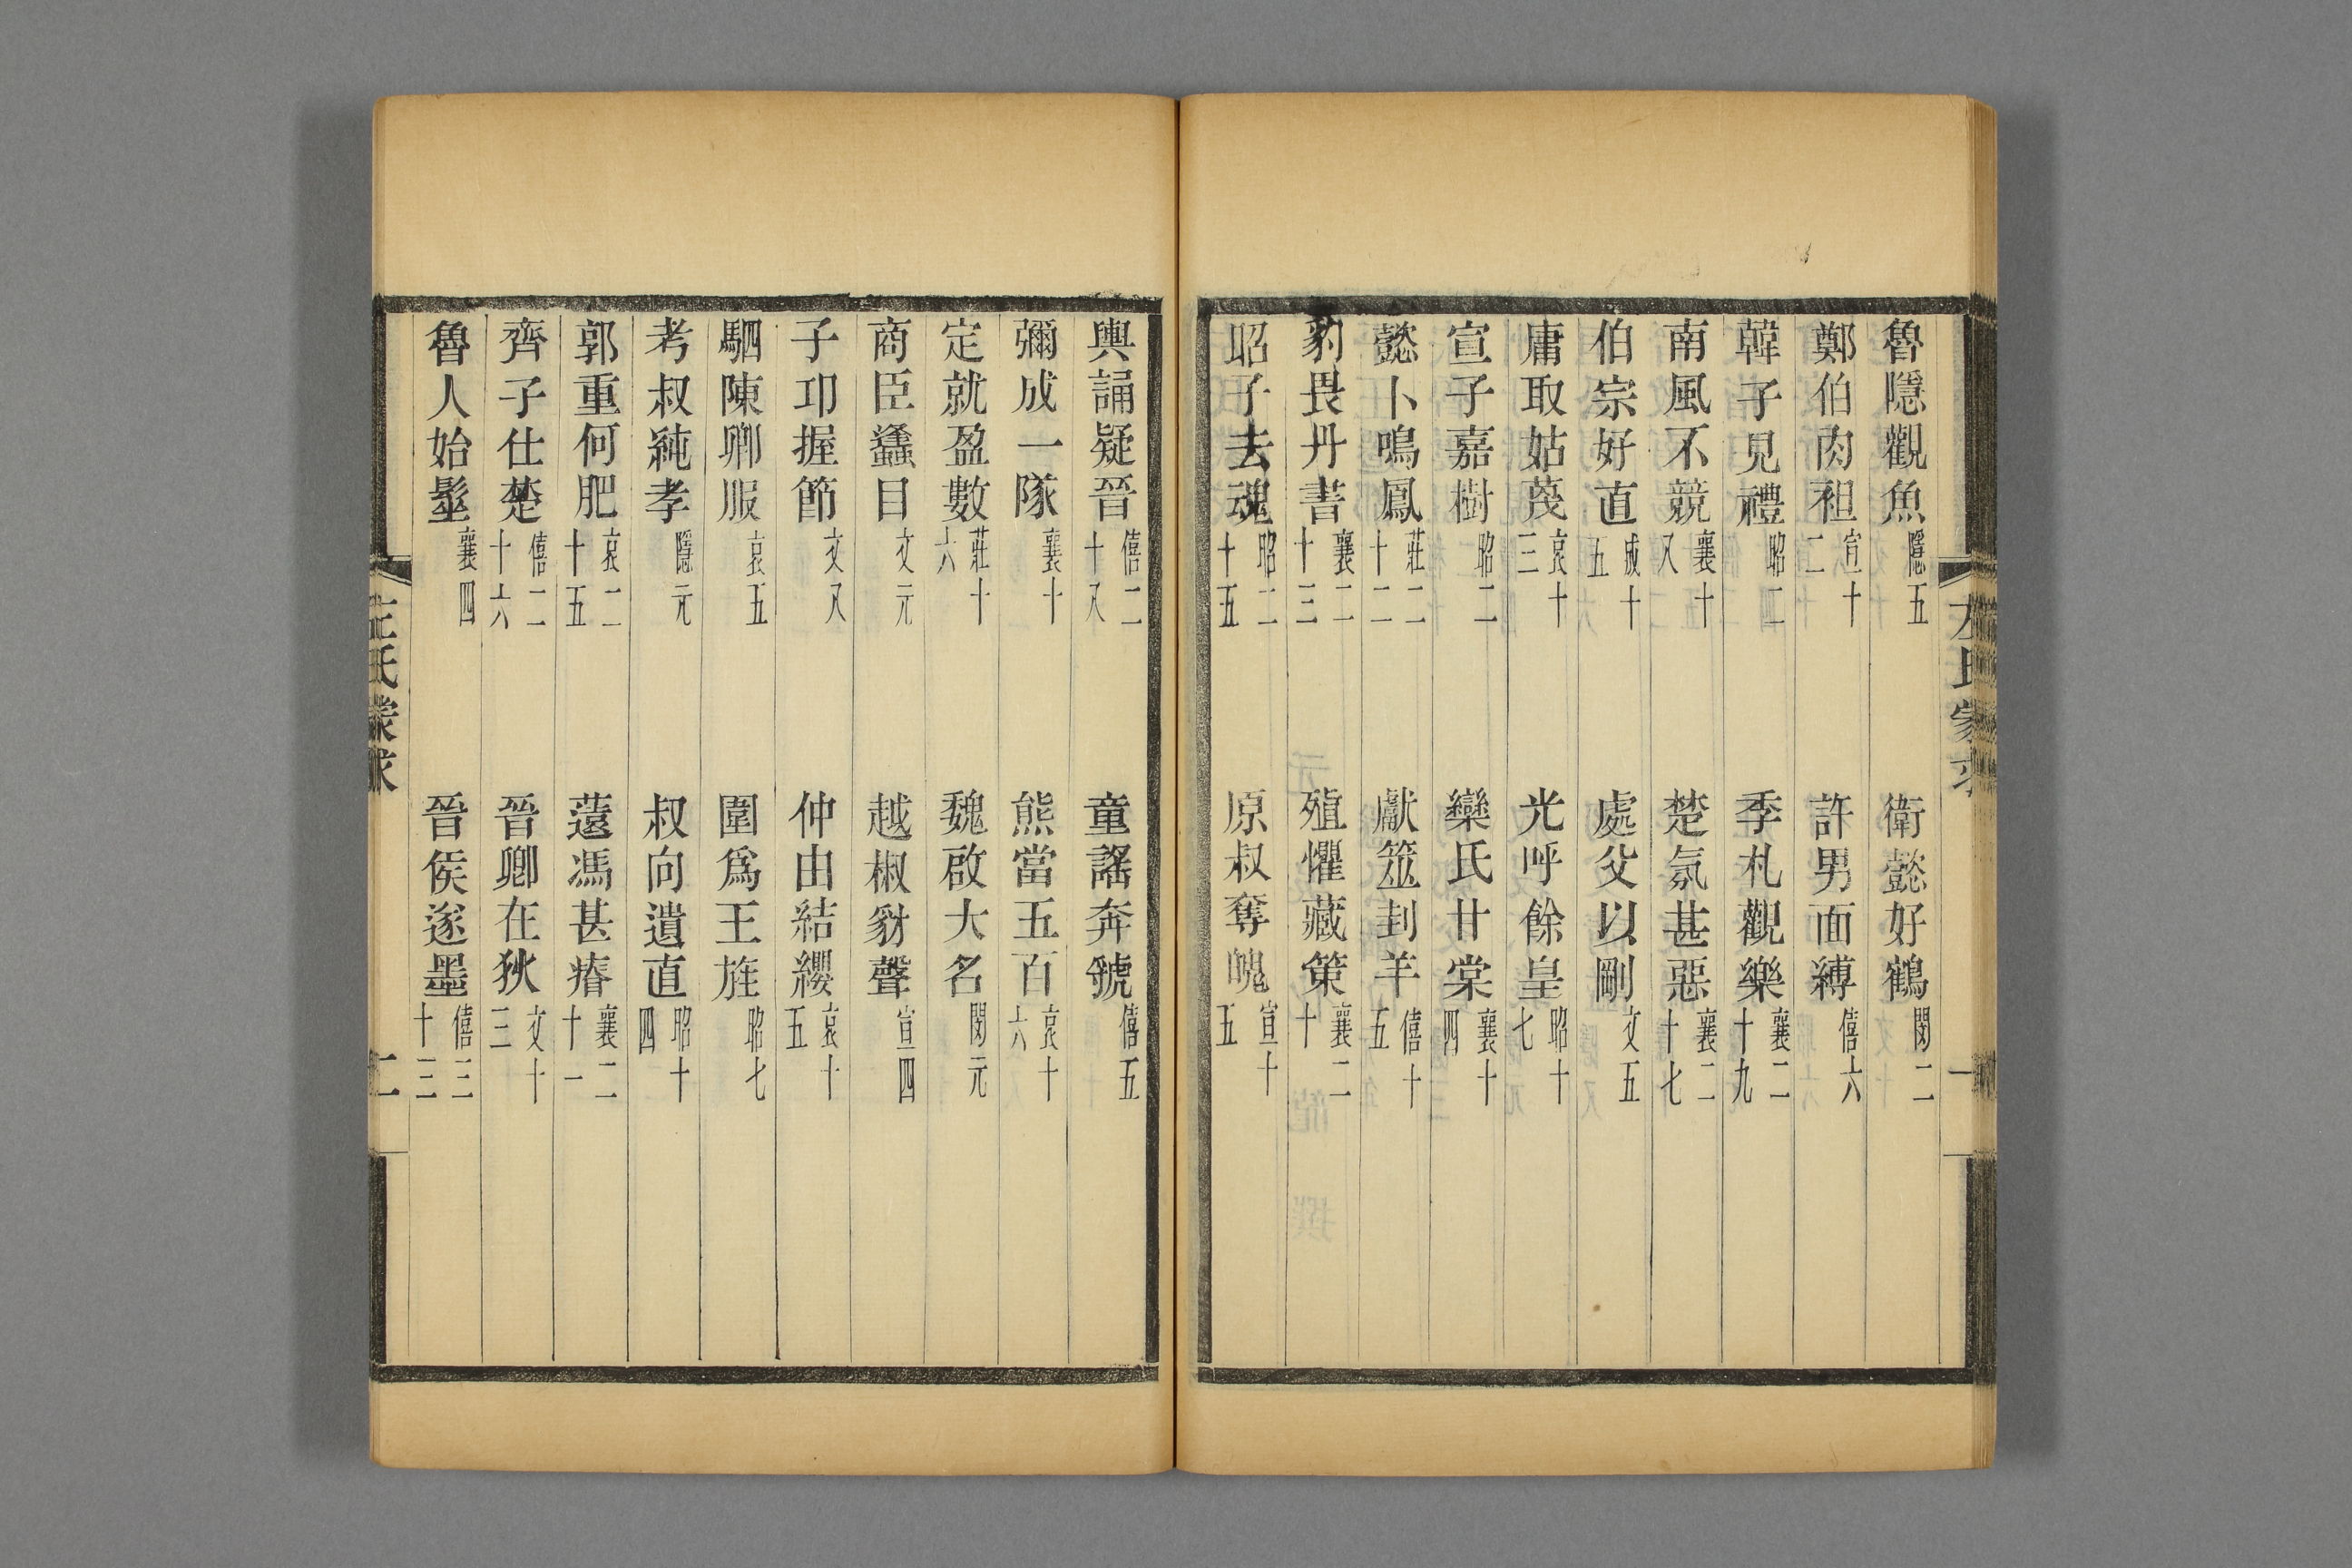 魯隱觀魚隱五 衛懿好鶴閔二
鄭伯肉袒宣十二 許男面縛僖六
韓子見禮昭二 季札觀樂襄二十九
南風不競襄十八 楚氛甚惡襄二十七
伯宗好直成十五 處父以剛文五
庸取姑蔑哀十三 光呼餘皇昭十七
宣子嘉樹昭二 欒氏甘棠襄十四
懿卜鳴鳳莊二十二 獻筮刲羊僖十五
豹畏丹書襄二十三 殖懼藏策襄二十
昭子去魂昭二十五 原叔奪魄宣十五
左氏蒙求 一
輿誦疑晉僖二十八 童謠奔虢僖五
彌成一隊襄十 熊當五百哀十六
定就盈數莊十六 魏啟大名閔元
商臣蠭目文元 越椒豺聲宣四
子卭握節文八 仲由結纓哀十五
駟陳卿服哀五 圍爲王旌昭七
考叔純孝隱元 叔向遺直昭十四
郭重何肥哀二十五 薳馮甚瘠襄二十一
齊子仕楚僖二十六 晉卿在狄文十三
魯人始髽襄四 晉侯遂墨僖三十三
左氏蒙求 二